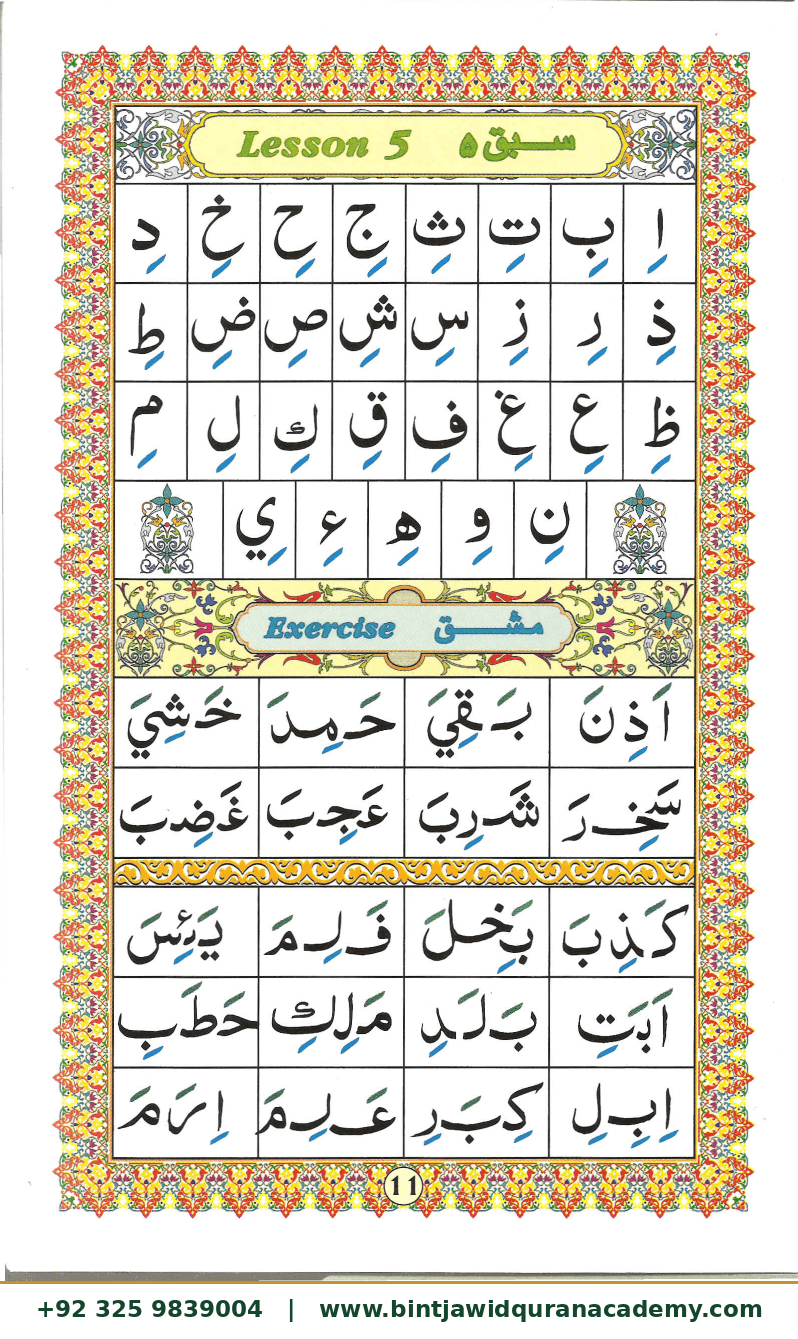 Lesson 5 سبق ۵
اِ بِ تِ ثِ جِ حِ خِ دِ
ذِ رِ زِ سِ شِ صِ ضِ طِ
ظِ عِ غِ فِ قِ كِ لِ مِ
نِ وِ هِ ءِ يِ
Exercise مشق
اَذِنَ بَقِيَ حَمِدَ خَشِيَ
سَخِرَ شَرِبَ عَجِبَ غَضِبَ
كَذِبَ بَخِلَ فَلِمَ يَئِسَ
اَبَتِ بَلَدِ مَلِكِ حَطَبِ
اِبِلِ كِبَرِ عَلِمَ اِرَمَ
11
+92 325 9839004 | www.bintjawidquranacademy.com